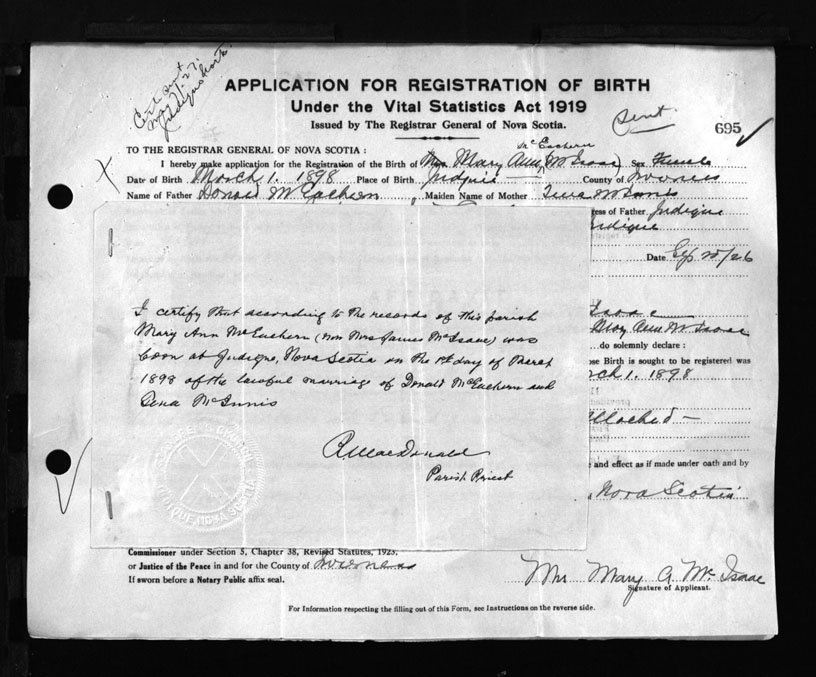 Cert sent
May 21. 27.
APPLICATION FOR REGISTRATION OF BIRTH
Under the Vital Statistics Act 1919
Issued by The Registrar General of Nova Scotia.
Sent
695
TO THE REGISTRAR GENERAL OF NOVA SCOTIA :
McEachern
I hereby make application for the Registration of the Birth of Mrs. Mary Ann (McIsaac) Sex Female
Date of Birth March 1. 1898 Place of Birth Judique County of Inverness
Name of Father Donald McEachern Maiden Name of Mother McInnis
ress of Father Judique
Judique
Date Sep 25/26
Isaac
Mary Ann McIsaac
do solemnly declare :
ose Birth is sought to be registered was
rch 1. 1898
attached —
e and effect as if made under oath and by
Nova Scotia
I certify that according to the records of this parish
Mary Ann McEachern (now Mrs James McIsaac) was
born at Judique, Nova Scotia on the 1st day of March
1898 of the lawful marriage of Donald McEachern and
Lena McInnis
R MacDonald
Parish Priest
NOVA SCOTIA
Commissioner under Section 5, Chapter 38, Revised Statutes, 1923,
or Justice of the Peace in and for the County of Inverness
If sworn before a Notary Public affix seal.
Mrs Mary A McIsaac
Signature of Applicant.
For Information respecting the filling out of this Form, see Instructions on the reverse side.